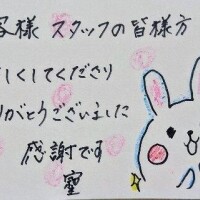 客様 スタッフの皆様方
しくしてくださり
りがとうございました
感謝です